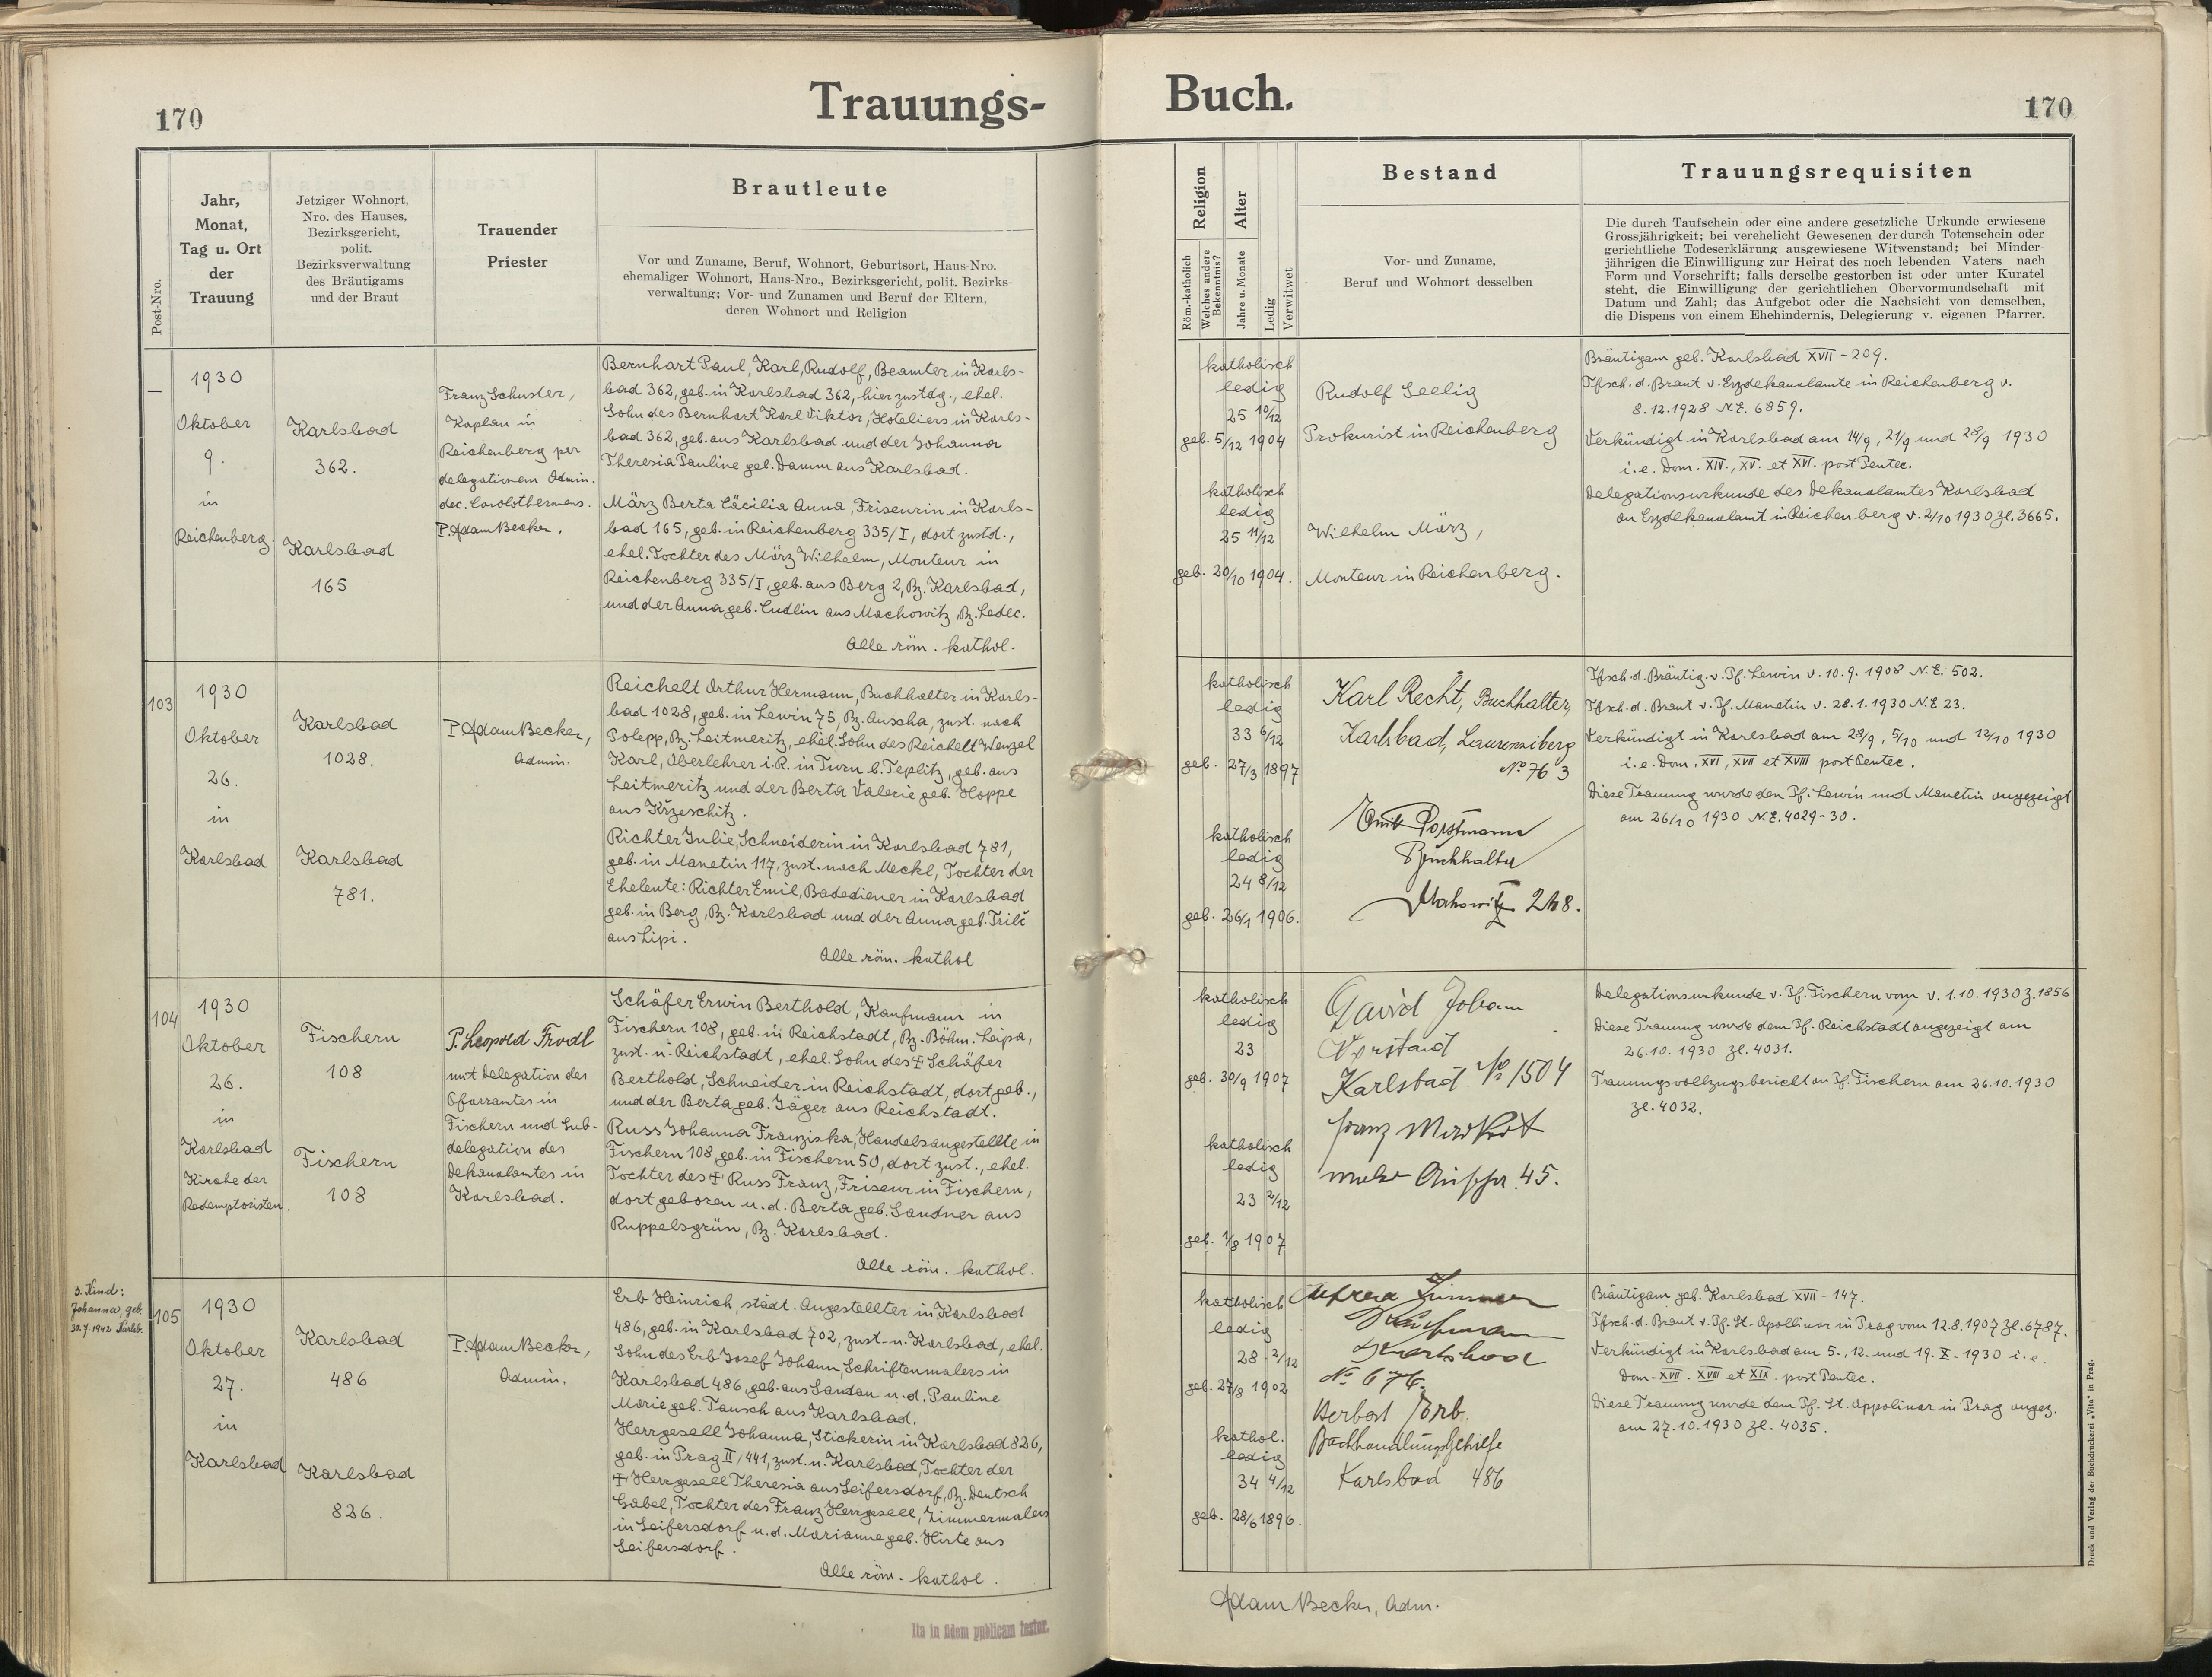 170
Trauungs-
Jahr,
Monat,
Tag u. Ort
der
Trauung
Post-Nro.
Jetziger Wohnort,
Nro. des Hauses,
Bezirksgericht,
polit.
Bezirksverwaltung
des Bräutigams
und der Braut
Trauender
Priester
Brautleute
Vor und Zuname, Beruf, Wohnort, Geburtsort, Haus-Nro.
ehemaliger Wohnort, Haus-Nro., Bezirksgericht, polit. Bezirks-
verwaltung; Vor- und Zunamen und Beruf der Eltern,
deren Wohnort und Religion
—
1930
Oktober
9.
in
Reichenberg.
Karlsbad
362.
Karlsbad
165
Franz Schuster,
Kaplan in
Reichenberg per
delegationem Admin.
dec. Carolothermens.
P. Adam Becker.
Bernhart Paul, Karl, Rudolf, Beamter in Karls-
bad 362, geb. in Karlsbad 362, hier zustdg., ehel.
Sohn des Bernhart Karl Viktor, Hoteliers in Karls-
bad 362, geb. aus Karlsbad und der Johanna
Theresia Pauline geb. Damm aus Karlsbad.
März Berta Cäcilia Anna, Friseurin in Karls-
bad 165, geb. in Reichenberg 335/I, dort zustd.,
ehel. Tochter des März Wilhelm, Monteur in
Reichenberg 335/I, geb. aus Berg 2, Bz. Karlsbad,
und der Anna geb. Cudlin aus Machowitz Bz. Ledec.
Alle röm. kathol.
103
1930
Oktober
26.
in
Karlsbad
Karlsbad
1028.
Karlsbad
781.
P. Adam Becker,
Admin.
Reichelt Arthur Hermann, Buchhalter in Karls-
bad 1028, geb. in Lewin 75, Bz. Auscha, zust. nach
Polepp, Bz. Leitmeritz, ehel. Sohn des Reichelt Wenzel
Karl, Oberlehrer i. R. in Turn b. Teplitz, geb. aus
Leitmeritz und der Berta Valerie geb. Hoppe
aus Kržeschitz.
Richter Julie, Schneiderin in Karlsbad 781,
geb. in Manetin 117, zust. nach Meckl, Tochter der
Eheleute: Richter Emil, Badediener in Karlsbad
geb. in Berg, Bz. Karlsbad und der Anna geb.
aus Lipi.
Alle röm. kathol
104
1930
Oktober
26.
in
Karlsbad
Kirche der
Redemptoristen.
Fischern
108
Fischern
108
P. Leopold Trodl
mit Delegation des
Pfarramtes in
Fischern und Sub-
delegation des
Dekanalamtes in
Karlsbad.
Schäfer Erwin Berthold, Kaufmann in
Fischern 108, geb. in Reichstadt, Bz. Böhm. Leipa,
zust. n. Reichstadt, ehel. Sohn des † Schäfer
Berthold, Schneider in Reichstadt, dort geb.,
und der Berta geb. Jäger aus Reichstadt.
Russ Johanna Franziska, Handelsangestellte in
Fischern 108, geb. in Fischern 50, dort zust., ehel.
Tochter des † Russ Franz, Friseur in Fischern,
dort geboren u. d. Berta geb. Sandner aus
Ruppelsgrün, Bz. Karlsbad.
Alle röm. kathol.
Kind:
Johanna, geb.
30.7.1942 Karlsb.
105
1930
Oktober
27.
in
Karlsbad
Karlsbad
486
Karlsbad
826.
P. Adam Becker,
Admin.
Erb Heinrich, städt. Angestellter in Karlsbad
486, geb. in Karlsbad 702, zust. n. Karlsbad, ehel.
Sohn des Erb Josef Johann, Schriftenmalers in
Karlsbad 486, geb. aus Sandau u. d. Pauline
Marie geb. Tausch aus Karlsbad.
Herrgesell Johanna, Stickerin in Karlsbad 826,
geb. in Prag II/441, zust. n. Karlsbad, Tochter der
† Herrgesell Theresia aus Seifersdorf, Bz. Deutsch
Gabel, Tochter des Franz Herrgesell, Zimmermalers
in Seifersdorf u. d. Marianne geb. Hirte aus
Seifersdorf.
Alle röm. kathol.
Ita in fidem publicam testor.
Buch.
170
Religion
Röm.-katholisch
Welches andere
Bekenntnis?
Alter
Jahre u. Monate
Ledig
Verwitwet
Bestand
Vor- und Zuname,
Beruf und Wohnort desselben
Trauungsrequisiten
Die durch Taufschein oder eine andere gesetzliche Urkunde erwiesene
Grossjährigkeit; bei verehelicht Gewesenen der durch Totenschein oder
gerichtliche Todeserklärung ausgewiesene Witwenstand; bei Minder-
jährigen die Einwilligung zur Heirat des noch lebenden Vaters nach
Form und Vorschrift; falls derselbe gestorben ist oder unter Kuratel
steht, die Einwilligung der gerichtlichen Obervormundschaft mit
Datum und Zahl; das Aufgebot oder die Nachsicht von demselben,
die Dispens von einem Ehehindernis, Delegierung v. eigenen Pfarrer.
katholisch
ledig
25 10/12
geb. 5/12 1904
katholisch
ledig
25 11/12
geb. 20/10 1904.
Rudolf Seelig
Prokurist in Reichenberg
Wilhelm März,
Monteur in Reichenberg.
Bräutigam geb. Karlsbad XVII - 209.
Tfsch. d. Braut v. Erzdekanalamte in Reichenberg v.
8.12.1928 N.E. 6859.
Verkündigt in Karlsbad am 14/9, 21/9 und 28/9 1930
i. e. Dom. XIV., XV. et XVI. post Pentec.
Delegationsurkunde des Dekanalamtes Karlsbad
an Erzdekanalamt in Reichenberg v. 2/10 1930 Zl. 3665.
katholisch
ledig
33 6/12
geb. 27/3 1897
katholisch
ledig
24 8/12
geb. 26/1 1906.
Karl Recht, Buchhalter,
Karlsbad, Laurenziberg
No 763
Emil Porstmann
Buchhalter
248.
Tfsch. d. Bräutig. v. Pf. Lewin v. 10.9.1908 N.E. 502.
Tfsch. d. Braut v. Pf. Manetin v. 28.1.1930 N.E 23.
Verkündigt in Karlsbad am 28/9, 5/10 und 12/10 1930
i. e. Dom. XVI, XVII et XVIII post Pentec.
Diese Trauung wurde den Pf. Lewin und Manetin angezeigt
am 26/10 1930 N.E. 4029-30.
katholisch
ledig
23
geb. 30/9 1907
katholisch
ledig
23 2/12
geb. 1/8 1907
David Johann
Vorstand
Karlsbad No 1504
Franz
45.
Delegationsurkunde v. Pf. Fischern vom v. 1.10.1930 Z. 1856
Diese Trauung wurde dem Pf. Reichstadt angezeigt am
26.10.1930 Zl. 4031.
Trauungsvollzugsbericht an Pf. Fischern am 26.10.1930
Zl. 4032.
katholisch
ledig
28 2/12
geb. 27/8 1902
kathol.
ledig
34 4/12
geb. 28/6 1896.
Alfred
Kaufmann
Karlsbad
No 676.
Herbert Erb.
Buchhandlungsgehilfe
Karlsbad 486
Bräutigam geb. Karlsbad XVII - 147.
Tfsch. d. Braut v. Pf. St. Apollinar in Prag vom 12.8.1907 Zl. 6787.
Verkündigt in Karlsbad am 5., 12. und 19. X. 1930 i. e.
Dom. XVII. XVIII et XIX. post Pentec.
Diese Trauung wurde dem Pf. St. Appolinar in Prag angez.
am 27.10.1930 Zl. 4035.
Adam Becker, Adm.
Druck und Verlag der Buchdruckerei „Vita" in Prag.